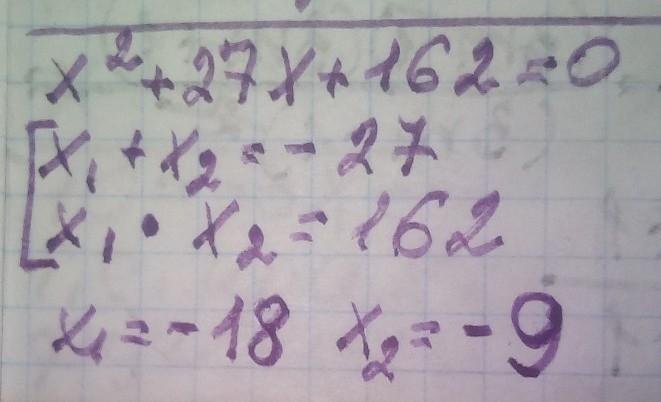 x²+27x+162=0
[x₁+x₂=-27
x₁·x₂=162
x₁=-18 x₂=-9